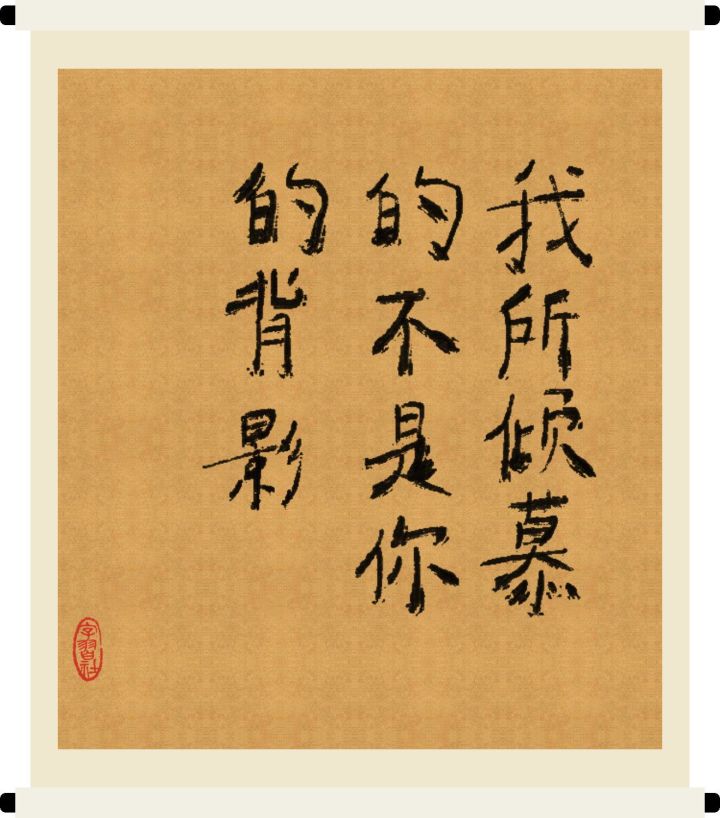 我所倾慕
的不是你
的背影
字習社